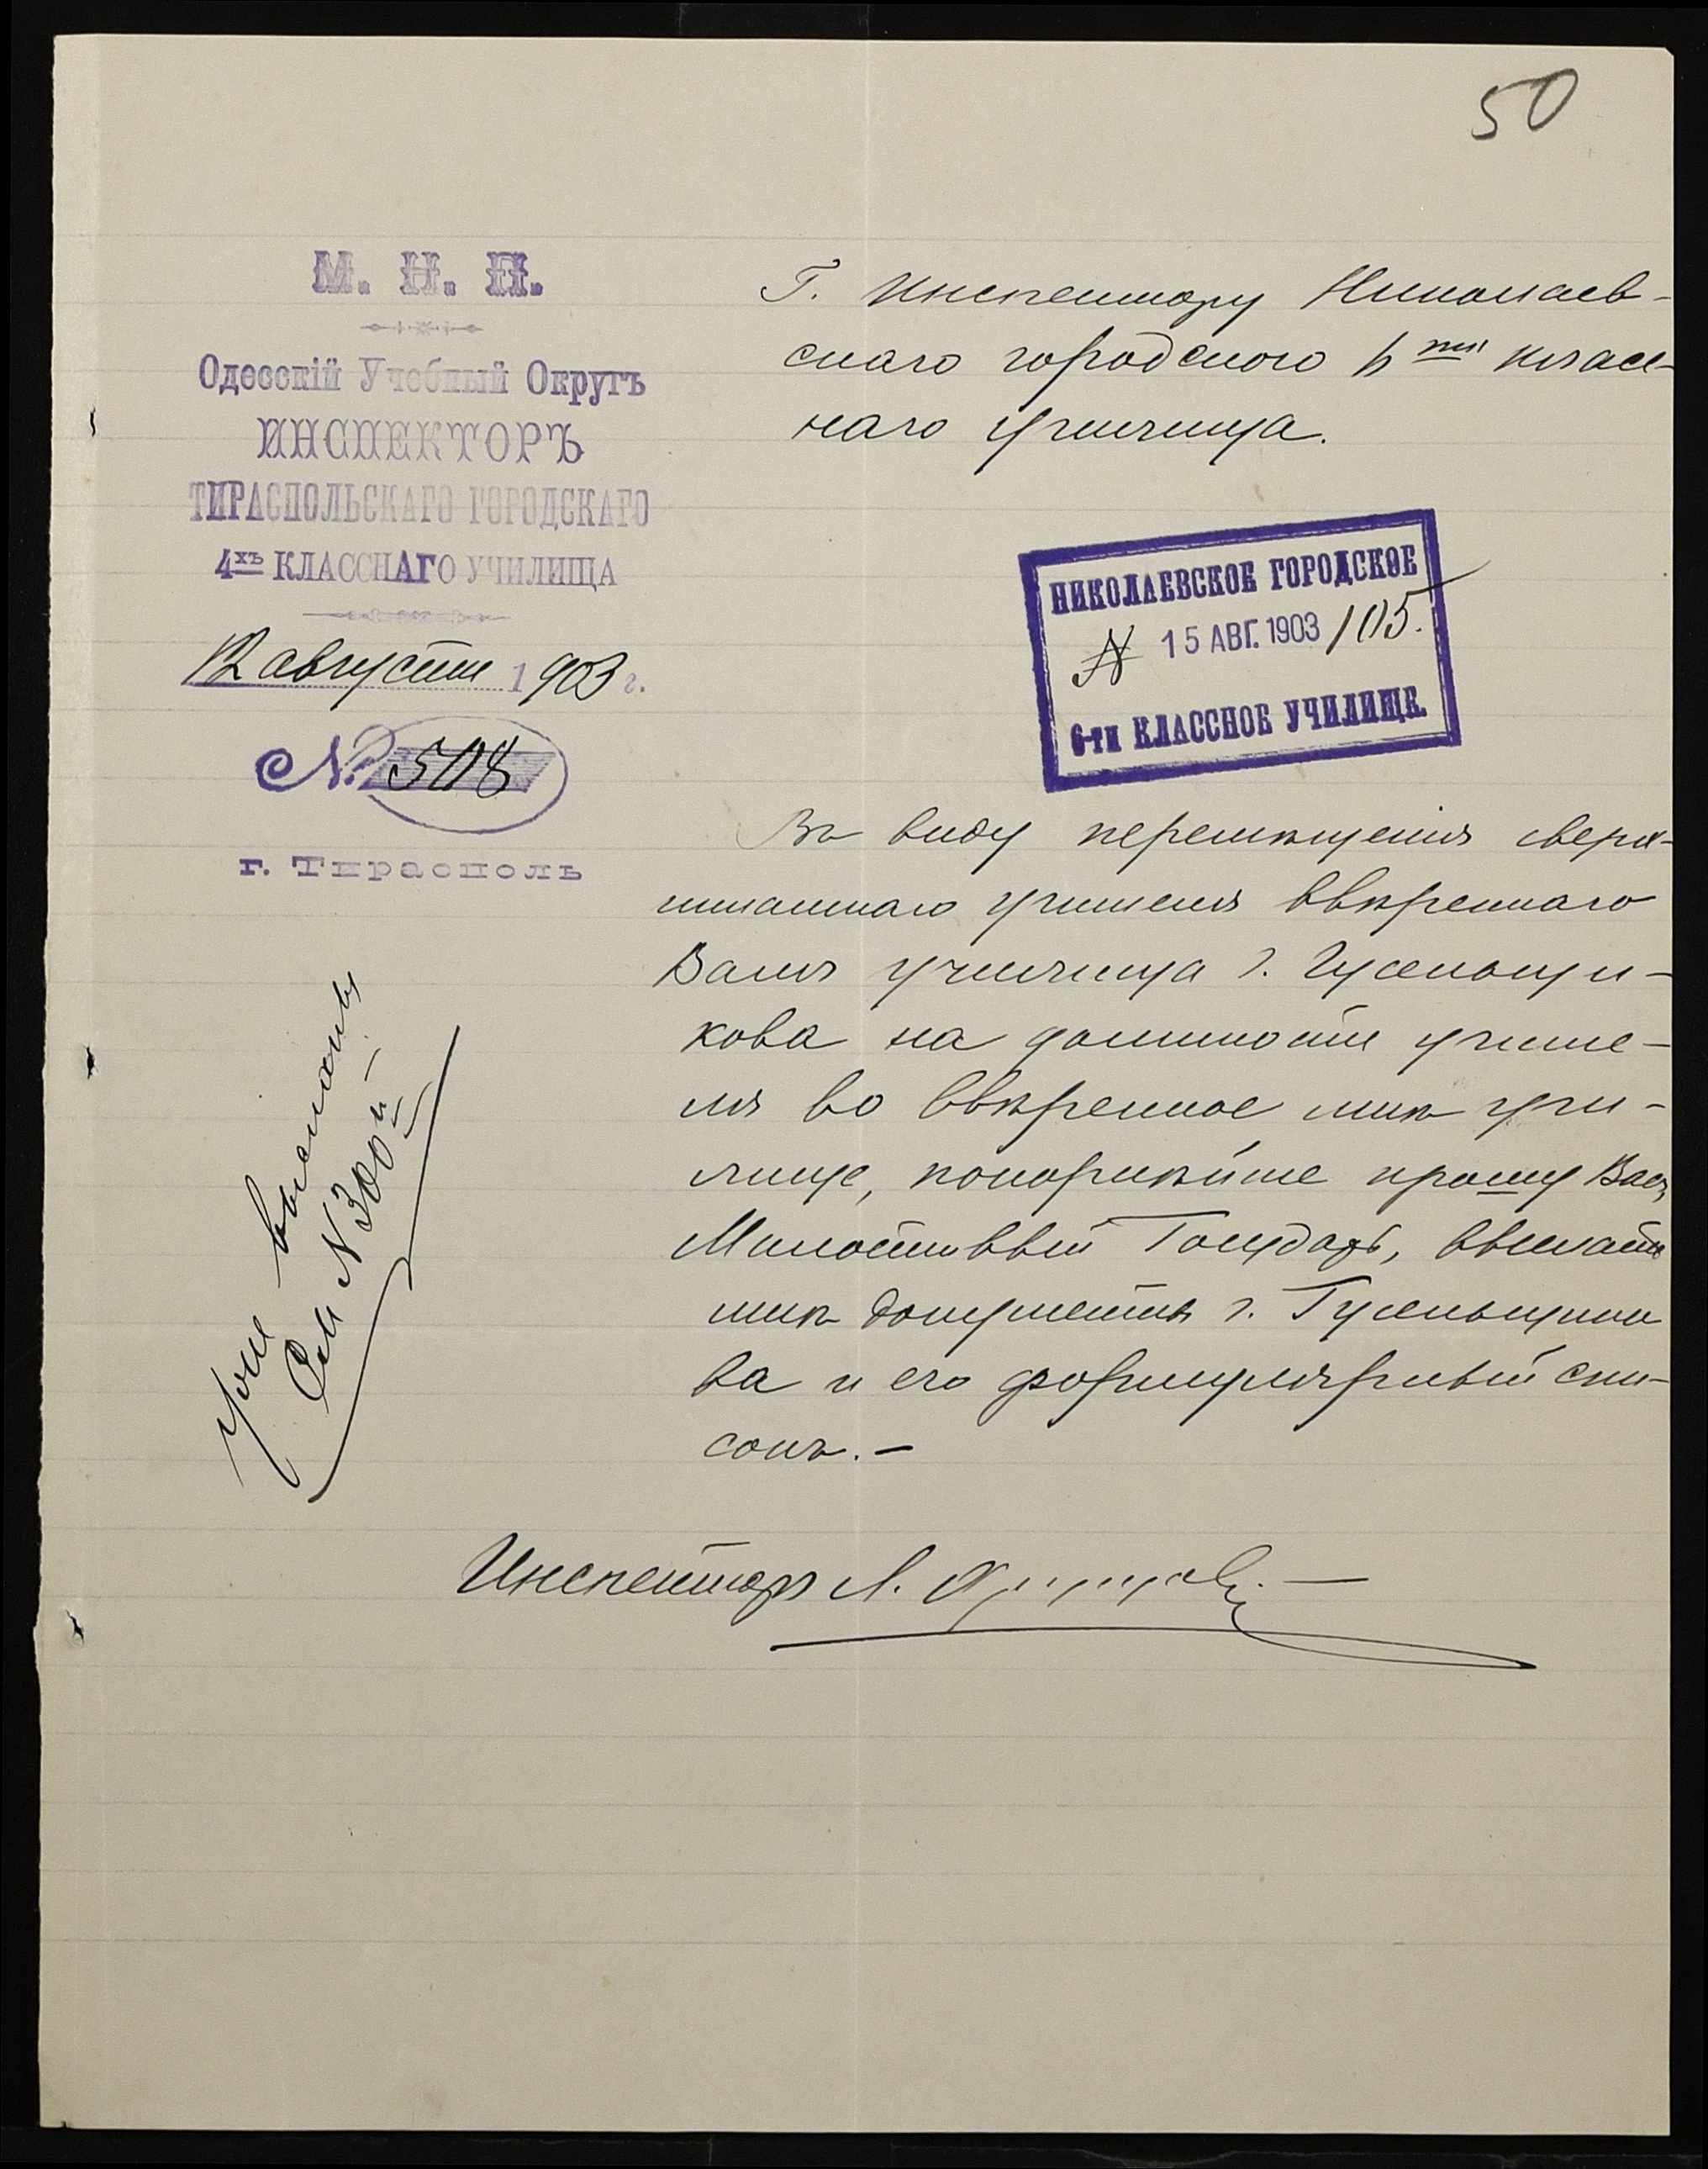 50
М. Н. П.
Одесскій Учебный Округъ
ИНСПЕКТОРЪ
ТИРАСПОЛЬСКАГО ГОРОДСКАГО
4хъ КЛАССНАГО УЧИЛИЩА
12 августа 1903 г.
№ 508
г. Тирасполь
Г. Инспектору Николаев-
скаго городского 6ти класс-
наго училища.
НИКОЛАЕВСКОЕ ГОРОДСКОЕ
N 15 АВГ. 1903 /105.
6-ти КЛАССНОЕ УЧИЛИЩЕ.
Въ виду перемѣщенія сверх-
штатнаго учителя ввѣреннаго
Вамъ училища г. Гусельщи-
кова на должность учите-
ля во ввѣренное мнѣ учи-
лище, покорнѣйше прошу Васъ,
Милостивый Государь, выслать
мнѣ документы г. Гусельщико
ва и его формулярный спи-
сокъ.-
Инспекторъ Л.
Уже высланы
См N 300й